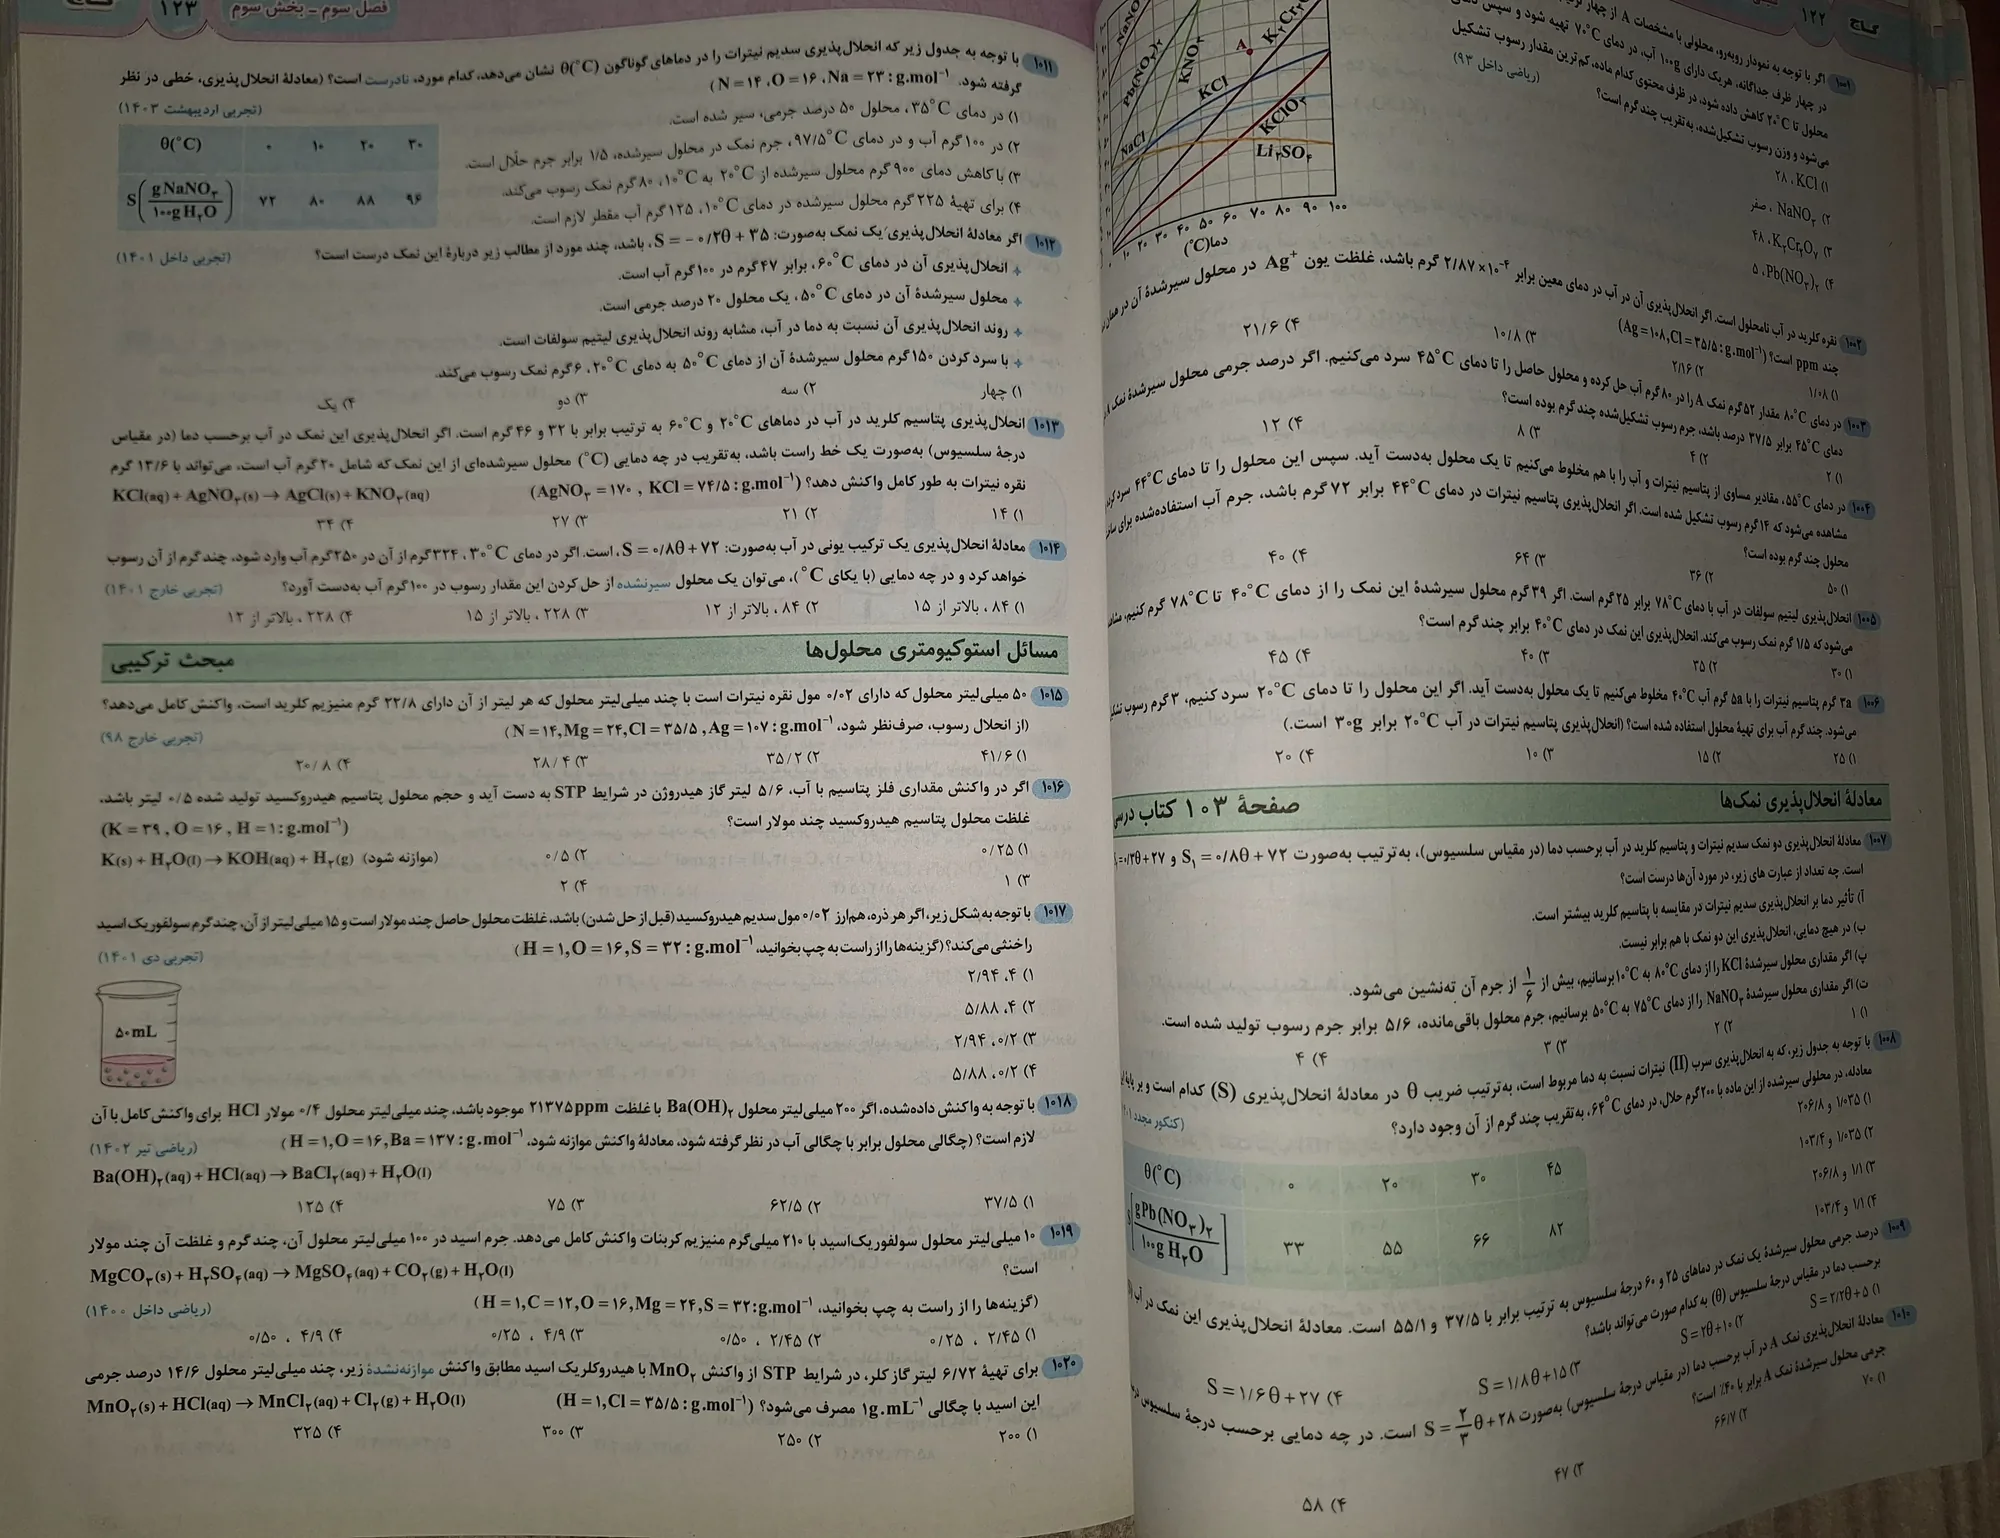 گاج
۱۲۲
۱۰۰۱ اگر با توجه به نمودار روبه‌رو، محلولی با مشخصات A از چهار
در چهار ظرف جداگانه، هریک دارای ۱۰۰g آب، در دمای ۷۰°C تهیه شود و سپس دمای
محلول تا ۲۰°C کاهش داده شود، در ظرف محتوی کدام ماده، کم‌ترین مقدار رسوب تشکیل
می‌شود و وزن رسوب تشکیل‌شده، به‌تقریب چند گرم است؟
(ریاضی داخل ۹۳)
۱) KCl، ۲۸
۲) NaNO۳، صفر
۳) K۲Cr۲O۷، ۴۸
۴) Pb(NO۳)۲، ۵
NaNO
Pb(NO۳)۲
KNO۳
A
K۲Cr۲O
KCl
NaCl
KClO۳
Li۲SO۴
۰ ۱۰ ۲۰ ۳۰ ۴۰ ۵۰ ۶۰ ۷۰ ۸۰ ۹۰ ۱۰۰
دما(°C)
۱۰۰۲ نقره کلرید در آب نامحلول است. اگر انحلال‌پذیری آن در آب در دمای معین برابر ۲/۸۷×۱۰⁻۴ گرم باشد، غلظت یون Ag⁺ در محلول سیرشدهٔ آن در همان
چند ppm است؟ (Ag=۱۰۸, Cl=۳۵/۵ : g.mol⁻¹)
۱) ۱/۰۸ ۲) ۲/۱۶ ۳) ۱۰/۸ ۴) ۲۱/۶
۱۰۰۳ در دمای ۸۰°C مقدار ۵۲ گرم نمک A را در ۸۰ گرم آب حل کرده و محلول حاصل را تا دمای ۴۵°C سرد می‌کنیم. اگر درصد جرمی محلول سیرشدهٔ نمک A در
دمای ۴۵°C برابر ۳۷/۵ درصد باشد، جرم رسوب تشکیل‌شده چند گرم بوده است؟
۱) ۲ ۲) ۴ ۳) ۸ ۴) ۱۲
۱۰۰۴ در دمای ۵۵°C، مقادیر مساوی از پتاسیم نیترات و آب را با هم مخلوط می‌کنیم تا یک محلول به‌دست آید. سپس این محلول را تا دمای ۴۴°C سرد
مشاهده می‌شود که ۱۴ گرم رسوب تشکیل شده است. اگر انحلال‌پذیری پتاسیم نیترات در دمای ۴۴°C برابر ۷۲ گرم باشد، جرم آب استفاده‌شده برای
محلول چند گرم بوده است؟
۱) ۵۰ ۲) ۳۶ ۳) ۶۴ ۴) ۴۰
۱۰۰۵ انحلال‌پذیری لیتیم سولفات در آب با دمای ۷۸°C برابر ۲۵ گرم است. اگر ۳۹ گرم محلول سیرشدهٔ این نمک را از دمای ۴۰°C تا ۷۸°C گرم کنیم،
می‌شود که ۱/۵ گرم نمک رسوب می‌کند. انحلال‌پذیری این نمک در دمای ۴۰°C برابر چند گرم است؟
۱) ۳۰ ۲) ۳۵ ۳) ۴۰ ۴) ۴۵
۱۰۰۶ ۳a گرم پتاسیم نیترات را با ۵a گرم آب ۴۰°C مخلوط می‌کنیم تا یک محلول به‌دست آید. اگر این محلول را تا دمای ۲۰°C سرد کنیم، ۳ گرم رسوب
می‌شود. چند گرم آب برای تهیهٔ محلول استفاده شده است؟ (انحلال‌پذیری پتاسیم نیترات در آب ۲۰°C برابر ۳۰g است.)
۱) ۲۵ ۲) ۱۵ ۳) ۱۰ ۴) ۲۰
معادلهٔ انحلال‌پذیری نمک‌ها صفحهٔ ۱۰۳ کتاب درسی
۱۰۰۷ معادلهٔ انحلال‌پذیری دو نمک سدیم نیترات و پتاسیم کلرید در آب برحسب دما (در مقیاس سلسیوس)، به‌ترتیب به‌صورت S۱=۰/۸θ+۷۲ و =۰/۳θ+۲۷
است. چه تعداد از عبارت های زیر، در مورد آن‌ها درست است؟
آ) تأثیر دما بر انحلال‌پذیری سدیم نیترات در مقایسه با پتاسیم کلرید بیشتر است.
ب) در هیچ دمایی، انحلال‌پذیری این دو نمک با هم برابر نیست.
پ) اگر مقداری محلول سیرشدهٔ KCl را از دمای ۸۰°C به ۱۰°C برسانیم، بیش از ۱/۶ از جرم آن ته‌نشین می‌شود.
ت) اگر مقداری محلول سیرشدهٔ NaNO۳ را از دمای ۷۵°C به ۵۰°C برسانیم، جرم محلول باقی‌مانده، ۵/۶ برابر جرم رسوب تولید شده است.
۱) ۱ ۲) ۲ ۳) ۳ ۴) ۴
۱۰۰۸ با توجه به جدول زیر، که به انحلال‌پذیری سرب (II) نیترات نسبت به دما مربوط است، به‌ترتیب ضریب θ در معادلهٔ انحلال‌پذیری (S) کدام است و بر پایهٔ
معادله، در محلولی سیرشده از این ماده با ۲۰۰ گرم حلال، در دمای ۶۴°C، به‌تقریب چند گرم از آن وجود دارد؟
(کنکور مجدد
۱) ۱/۰۳۵ و ۲۰۶/۸
۲) ۱/۰۳۵ و ۱۰۳/۴
۳) ۱/۱ و ۲۰۶/۸
۴) ۱/۱ و ۱۰۳/۴
θ(°C) ۰ ۲۰ ۳۰ ۴۵
[gPb(NO۳)۲ / ۱۰۰g H۲O] ۳۳ ۵۵ ۶۶ ۸۲
۱۰۰۹ درصد جرمی محلول سیرشدهٔ یک نمک در دماهای ۲۵ و ۶۰ درجهٔ سلسیوس به ترتیب برابر با ۳۷/۵ و ۵۵/۱ است. معادلهٔ انحلال‌پذیری این نمک در آب
برحسب دما در مقیاس درجهٔ سلسیوس (θ) به کدام صورت می‌تواند باشد؟
۱) S=۲/۲θ+۵ ۲) S=۲θ+۱۰ ۳) S=۱/۸θ+۱۵ ۴) S=۱/۶θ+۲۷
۱۰۱۰ معادلهٔ انحلال‌پذیری نمک A در آب برحسب دما (در مقیاس درجهٔ سلسیوس) به‌صورت S=۲/۳θ+۲۸ است. در چه دمایی برحسب درجهٔ سلسیوس
جرمی محلول سیرشدهٔ نمک A برابر با ۴۰٪ است؟
۱) ۷۰ ۲) ۶۶/۷ ۳) ۴۷ ۴) ۵۸
فصل سوم - بخش سوم ۱۲۳ گاج
۱۰۱۱ با توجه به جدول زیر که انحلال‌پذیری سدیم نیترات را در دماهای گوناگون θ(°C) نشان می‌دهد، کدام مورد، نادرست است؟ (معادلهٔ انحلال‌پذیری، خطی در نظر
گرفته شود. N=۱۴, O=۱۶, Na=۲۳ : g.mol⁻¹)
(تجربی اردیبهشت ۱۴۰۳)
۱) در دمای ۳۵°C، محلول ۵۰ درصد جرمی، سیر شده است.
۲) در ۱۰۰ گرم آب و در دمای ۹۷/۵°C، جرم نمک در محلول سیرشده، ۱/۵ برابر جرم حلّال است.
۳) با کاهش دمای ۹۰۰ گرم محلول سیرشده از ۲۰°C به ۱۰°C، ۸۰ گرم نمک رسوب می‌کند.
۴) برای تهیهٔ ۲۲۵ گرم محلول سیرشده در دمای ۱۰°C، ۱۲۵ گرم آب مقطر لازم است.
θ(°C) ۰ ۱۰ ۲۰ ۳۰
S(gNaNO۳ / ۱۰۰gH۲O) ۷۲ ۸۰ ۸۸ ۹۶
۱۰۱۲ اگر معادلهٔ انحلال‌پذیری یک نمک به‌صورت: S=−۰/۲θ+۳۵، باشد، چند مورد از مطالب زیر دربارهٔ این نمک درست است؟
(تجربی داخل ۱۴۰۱)
+ انحلال‌پذیری آن در دمای ۶۰°C، برابر ۴۷ گرم در ۱۰۰ گرم آب است.
+ محلول سیرشدهٔ آن در دمای ۵۰°C، یک محلول ۲۰ درصد جرمی است.
+ روند انحلال‌پذیری آن نسبت به دما در آب، مشابه روند انحلال‌پذیری لیتیم سولفات است.
+ با سرد کردن ۱۵۰ گرم محلول سیرشدهٔ آن از دمای ۵۰°C به دمای ۲۰°C، ۶ گرم نمک رسوب می‌کند.
۱) چهار ۲) سه ۳) دو ۴) یک
۱۰۱۳ انحلال‌پذیری پتاسیم کلرید در آب در دماهای ۲۰°C و ۶۰°C به ترتیب برابر با ۳۲ و ۴۶ گرم است. اگر انحلال‌پذیری این نمک در آب برحسب دما (در مقیاس
درجهٔ سلسیوس) به‌صورت یک خط راست باشد، به‌تقریب در چه دمایی (°C) محلول سیرشده‌ای از این نمک که شامل ۲۰ گرم آب است، می‌تواند با ۱۳/۶ گرم
نقره نیترات به طور کامل واکنش دهد؟ (AgNO۳=۱۷۰, KCl=۷۴/۵ : g.mol⁻¹) KCl(aq)+AgNO۳(s)→AgCl(s)+KNO۳(aq)
۱) ۱۴ ۲) ۲۱ ۳) ۲۷ ۴) ۳۴
۱۰۱۴ معادلهٔ انحلال‌پذیری یک ترکیب یونی در آب به‌صورت: S=۰/۸θ+۷۲، است. اگر در دمای ۳۰°C، ۳۲۴ گرم از آن در ۲۵۰ گرم آب وارد شود، چند گرم از آن رسوب
خواهد کرد و در چه دمایی (با یکای °C)، می‌توان یک محلول سیرنشده از حل کردن این مقدار رسوب در ۱۰۰ گرم آب به‌دست آورد؟
(تجربی خارج ۱۴۰۱)
۱) ۸۴، بالاتر از ۱۵ ۲) ۸۴، بالاتر از ۱۲ ۳) ۲۲۸، بالاتر از ۱۵ ۴) ۲۲۸، بالاتر از ۱۲
مسائل استوکیومتری محلول‌ها مبحث ترکیبی
۱۰۱۵ ۵۰ میلی‌لیتر محلول که دارای ۰/۰۲ مول نقره نیترات است با چند میلی‌لیتر محلول که هر لیتر از آن دارای ۲۲/۸ گرم منیزیم کلرید است، واکنش کامل می‌دهد؟
(از انحلال رسوب، صرف‌نظر شود، N=۱۴, Mg=۲۴, Cl=۳۵/۵, Ag=۱۰۷ : g.mol⁻¹)
(تجربی خارج ۹۸)
۱) ۴۱/۶ ۲) ۳۵/۲ ۳) ۲۸/۴ ۴) ۲۰/۸
۱۰۱۶ اگر در واکنش مقداری فلز پتاسیم با آب، ۵/۶ لیتر گاز هیدروژن در شرایط STP به دست آید و حجم محلول پتاسیم هیدروکسید تولید شده ۰/۵ لیتر باشد،
غلظت محلول پتاسیم هیدروکسید چند مولار است؟ (K=۳۹, O=۱۶, H=۱ : g.mol⁻¹)
(موازنه شود) K(s)+H۲O(l)→KOH(aq)+H۲(g)
۱) ۰/۲۵ ۲) ۰/۵
۳) ۱ ۴) ۲
۱۰۱۷ با توجه به شکل زیر، اگر هر ذره، هم‌ارز ۰/۰۲ مول سدیم هیدروکسید (قبل از حل شدن) باشد، غلظت محلول حاصل چند مولار است و ۱۵ میلی‌لیتر از آن، چند گرم سولفوریک اسید
را خنثی می‌کند؟ (گزینه‌ها را از راست به چپ بخوانید، H=۱, O=۱۶, S=۳۲ : g.mol⁻¹)
(تجربی دی ۱۴۰۱)
۱) ۴، ۲/۹۴
۲) ۴، ۵/۸۸
۳) ۰/۲، ۲/۹۴
۴) ۰/۲، ۵/۸۸
۵۰mL
۱۰۱۸ با توجه به واکنش داده‌شده، اگر ۲۰۰ میلی‌لیتر محلول Ba(OH)۲ با غلظت ۲۱۳۷۵ppm موجود باشد، چند میلی‌لیتر محلول ۰/۴ مولار HCl برای واکنش کامل با آن
لازم است؟ (چگالی محلول برابر با چگالی آب در نظر گرفته شود، معادلهٔ واکنش موازنه شود، H=۱, O=۱۶, Ba=۱۳۷ : g.mol⁻¹)
(ریاضی تیر ۱۴۰۲)
Ba(OH)۲(aq)+HCl(aq)→BaCl۲(aq)+H۲O(l)
۱) ۳۷/۵ ۲) ۶۲/۵ ۳) ۷۵ ۴) ۱۲۵
۱۰۱۹ ۱۰ میلی‌لیتر محلول سولفوریک‌اسید با ۲۱۰ میلی‌گرم منیزیم کربنات واکنش کامل می‌دهد. جرم اسید در ۱۰۰ میلی‌لیتر محلول آن، چند گرم و غلظت آن چند مولار
است؟ MgCO۳(s)+H۲SO۴(aq)→MgSO۴(aq)+CO۲(g)+H۲O(l)
(گزینه‌ها را از راست به چپ بخوانید، H=۱, C=۱۲, O=۱۶, Mg=۲۴, S=۳۲ : g.mol⁻¹)
(ریاضی داخل ۱۴۰۰)
۱) ۲/۴۵ ، ۰/۲۵ ۲) ۲/۴۵ ، ۰/۵۰ ۳) ۴/۹ ، ۰/۲۵ ۴) ۴/۹ ، ۰/۵۰
۱۰۲۰ برای تهیهٔ ۶/۷۲ لیتر گاز کلر، در شرایط STP از واکنش MnO۲ با هیدروکلریک اسید مطابق واکنش موازنه‌نشدهٔ زیر، چند میلی‌لیتر محلول ۱۴/۶ درصد جرمی
این اسید با چگالی ۱g.mL⁻¹ مصرف می‌شود؟ (H=۱, Cl=۳۵/۵ : g.mol⁻¹) MnO۲(s)+HCl(aq)→MnCl۲(aq)+Cl۲(g)+H۲O(l)
۱) ۲۰۰ ۲) ۲۵۰ ۳) ۳۰۰ ۴) ۳۲۵